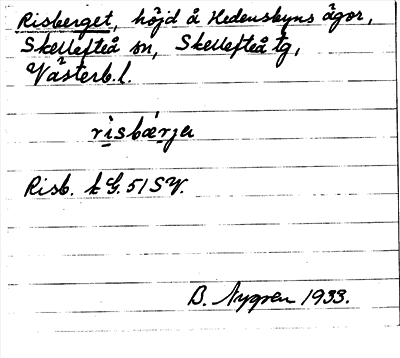 Risberget, höjd å Hedensbyns ägor,
Skellefteå sn, Skellefteå tg,
Västerb. l.
risbærjə
Risb. k G. 51 SV.
B. Nygren 1933.